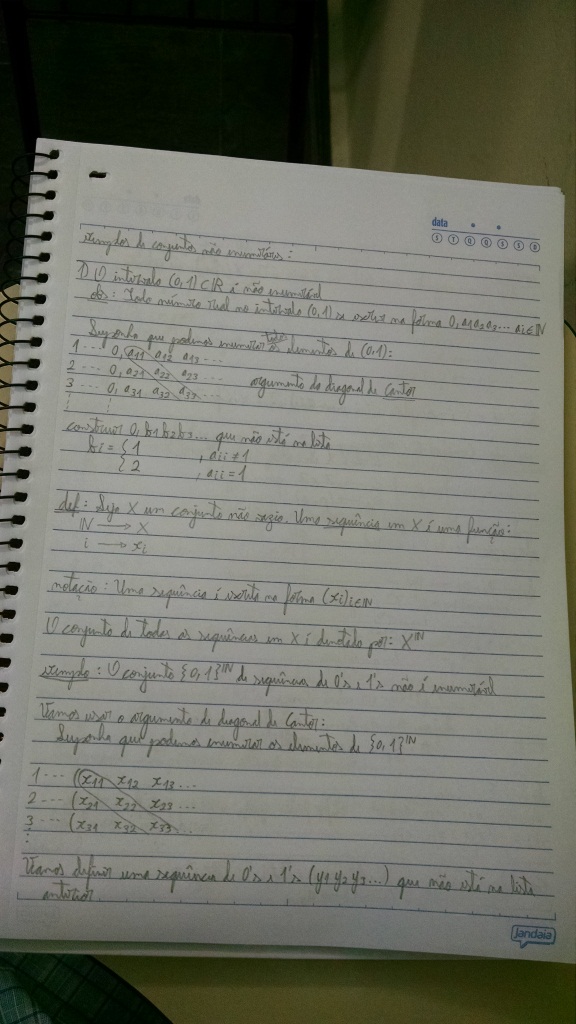 data
S T Q Q S S D
exemplos de conjuntos não enumeráveis:
1) O intervalo (0,1) ⊂ IR é não enumerável
obs: Todo número real no intervalo (0,1) se escreve na forma 0,a1a2a3... ai ∈ IN
Suponha que podemos enumerar todos os elementos de (0,1):
1 ... 0, a11 a12 a13 ...
2 ... 0, a21 a22 a23 ... argumento da diagonal de Cantor
3 ... 0, a31 a32 a33 ...
construir 0,b1b2b3... que não está na lista
bi = { 1 , aii ≠ 1
{ 2 , aii = 1
def: Seja X um conjunto não vazio. Uma sequência em X é uma função:
IN → X
i → xi
notação: Uma sequência é escrita na forma (xi)i∈IN
O conjunto de todas as sequências em X é denotado por: X^IN
exemplo: O conjunto {0,1}^IN de sequências de 0's e 1's não é enumerável
Vamos usar o argumento de diagonal de Cantor:
Suponha que podemos enumerar os elementos de {0,1}^IN
1 ... ((x11 x12 x13 ...
2 ... (x21 x22 x23 ...
3 ... (x31 x32 x33 ...
Vamos definir uma sequência de 0's e 1's (y1 y2 y3 ...) que não está na lista
anterior.
jandaia